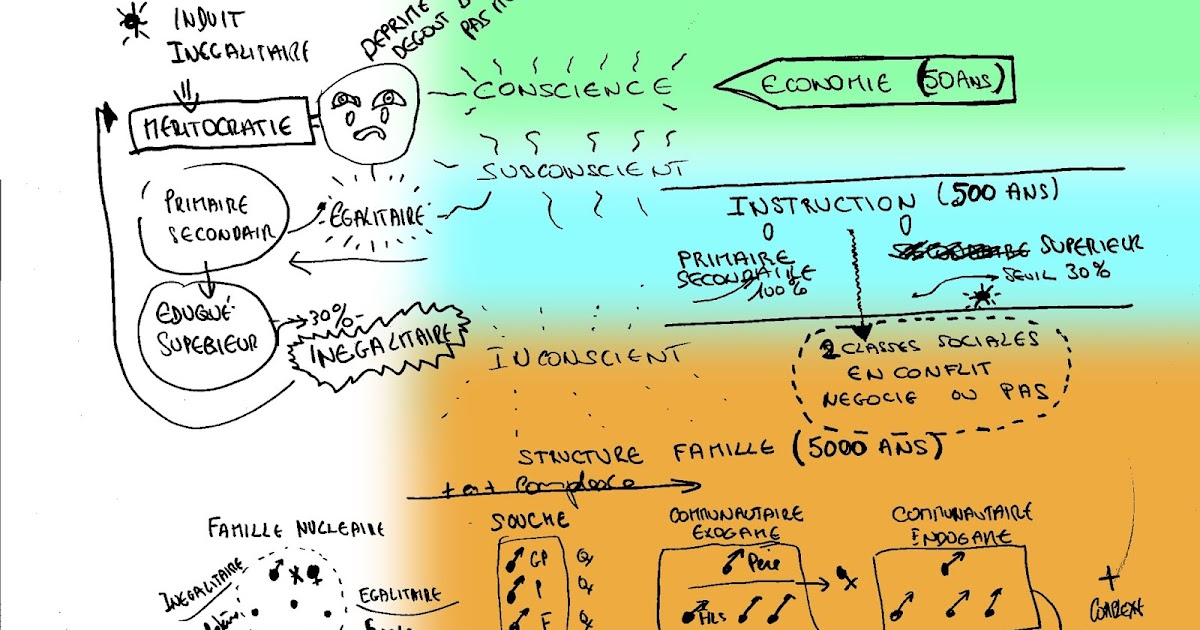 INDUIT
INEGALITAIRE
DEPRIME
DEGOUT
PAS
MERITOCRATIE
CONSCIENCE
ECONOMIE (50 ANS)
SUBCONSCIENT
PRIMAIRE
SECONDAIR
EGALITAIRE
INSTRUCTION (500 ANS)
PRIMAIRE
SECONDAIRE
100%
SUPERIEUR
SEUIL 30%
EDUQUÉ
SUPERIEUR
30%
INEGALITAIRE
INCONSCIENT
2 CLASSES SOCIALES
EN CONFLIT
NEGOCIE OU PAS
STRUCTURE FAMILLE (5000 ANS)
FAMILLE NUCLEAIRE
INEGALITAIRE
EGALITAIRE
SOUCHE
GP
P
F
COMMUNAUTAIRE
EXOGAME
Père
FILS
COMMUNAUTAIRE
ENDOGAME
+
COMPLEXE